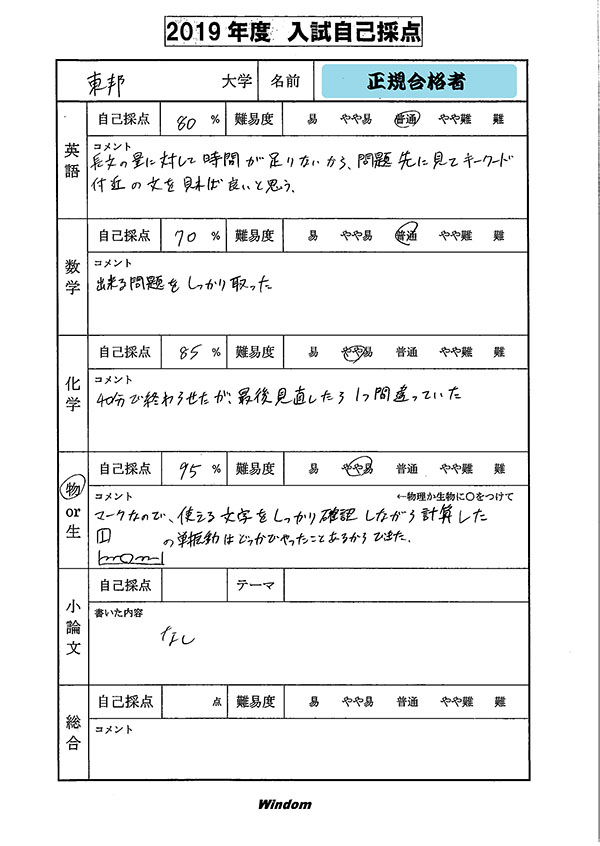 2019年度 入試自己採点
東邦 大学 名前 正規合格者
英語
自己採点 80 % 難易度 易 やや易 普通 やや難 難
コメント
長文の量に対して時間が足りないから、問題先に見てキーワード
付近の文を見れば良いと思う、
数学
自己採点 70 % 難易度 易 やや易 普通 やや難 難
コメント
出来る問題をしっかり取った
化学
自己採点 85 % 難易度 易 やや易 普通 やや難 難
コメント
40分で終わらせたが、最後見直したら1つ間違っていた
物or生
自己採点 95 % 難易度 易 やや易 普通 やや難 難
コメント ←物理か生物に○をつけて
マークなので、使える文字をしっかり確認しながら計算した
の単振動はどっかでやったことあるからできた.
小論文
自己採点 テーマ
書いた内容
なし
総合
自己採点 点 難易度 易 やや易 普通 やや難 難
コメント
Windom